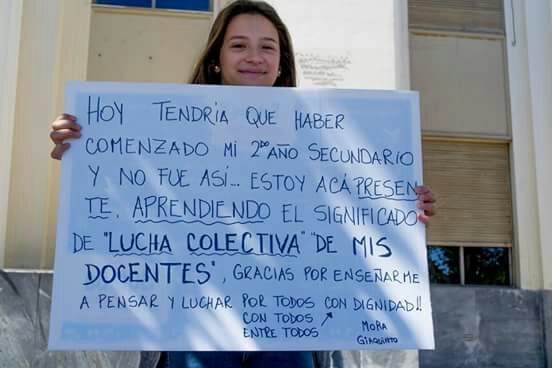 HOY TENDRIA QUE HABER
COMENZADO MI 2do AÑO SECUNDARIO
Y NO FUE ASÍ... ESTOY ACÁ PRESEN
TE. APRENDIENDO EL SIGNIFICADO
DE "LUCHA COLECTIVA" "DE MIS
DOCENTES", GRACIAS POR ENSEÑARME
A PENSAR Y LUCHAR POR TODOS CON DIGNIDAD!!
CON TODOS
ENTRE TODOS
MORA
GIAQUINTO